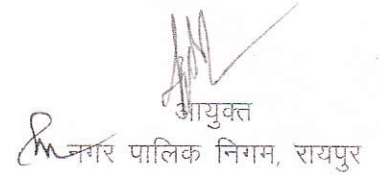 आयुक्त
नगर पालिक निगम, रायपुर